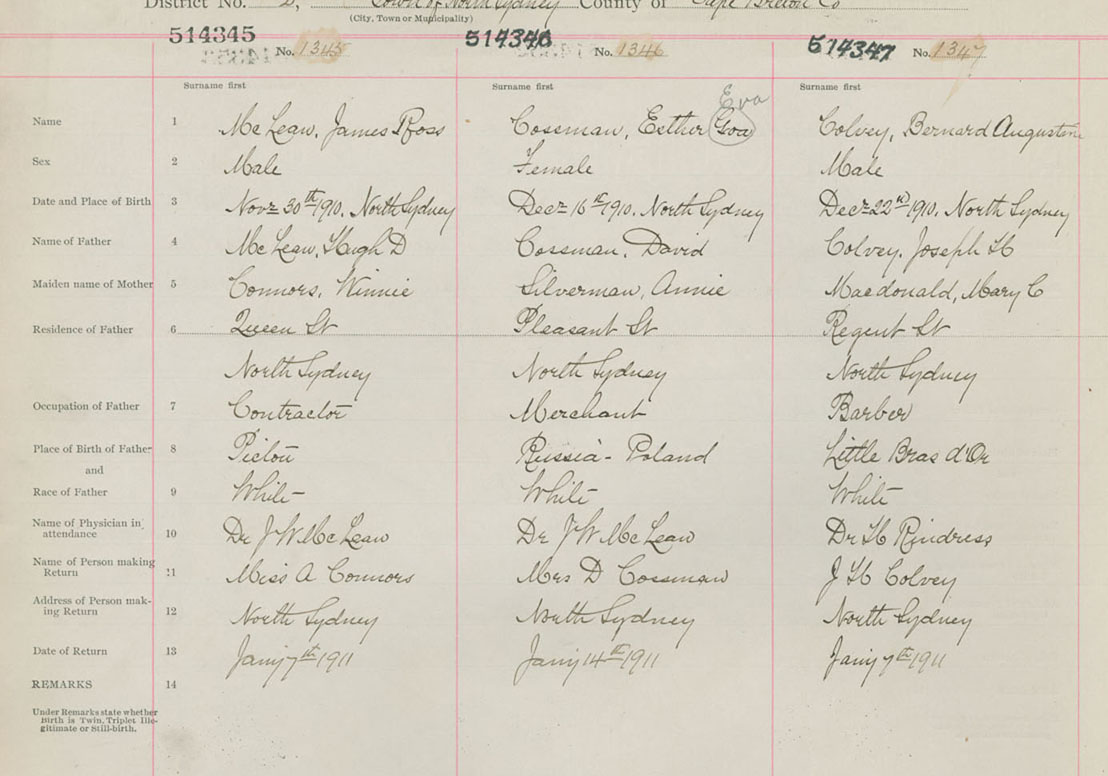 District No. 2, Town of North Sydney County of Cape Breton Co
(City, Town or Municipality)
514345 514346 514347
No. 1345 No. 1346 No. 1347
Surname first Surname first Surname first
Eva
Name 1 McLean, James Ross Cossman, Esther Goa Colvey, Bernard Augustine
Sex 2 Male Female Male
Date and Place of Birth 3 Novr 30th 1910. North Sydney Decr 16th 1910. North Sydney Decr 22nd 1910. North Sydney
Name of Father 4 McLean, Hugh D Cossman, David Colvey, Joseph H
Maiden name of Mother 5 Connors, Winnie Silverman, Annie Macdonald, Mary C
Residence of Father 6 Queen St Pleasant St Regent St
North Sydney North Sydney North Sydney
Occupation of Father 7 Contractor Merchant Barber
Place of Birth of Father 8 Pictou Russia - Poland Little Bras d'Or
and
Race of Father 9 White White White
Name of Physician in
attendance 10 Dr J W McLean Dr J W McLean Dr H Rindress
Name of Person making
Return 11 Miss A Connors Mrs D Cossman J H Colvey
Address of Person mak-
ing Return 12 North Sydney North Sydney North Sydney
Date of Return 13 Jany 7th 1911 Jany 14th 1911 Jany 7th 1911
REMARKS 14
Under Remarks state whether
Birth is Twin, Triplet Ille-
gitimate or Still-birth.